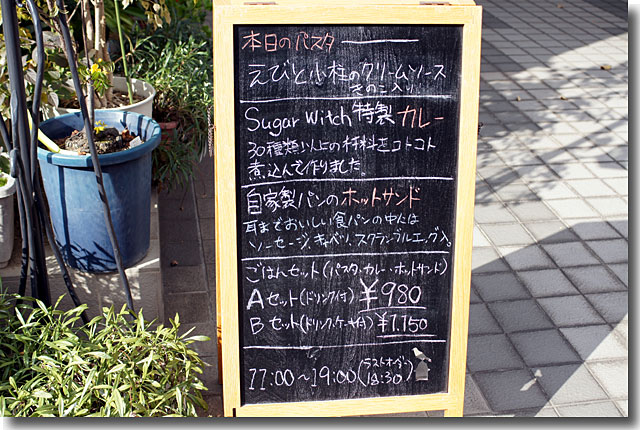 本日のパスタ
えびと小柱のクリームソース
きのこ入り
Sugar Witch 特製 カレー
30種類以上の材料をコトコト
煮込んで作りました。
自家製パンのホットサンド
耳までおいしい食パンの中には
ソーセージ、キャベツ、スクランブルエッグ入。
ごはんセット(パスタ・カレー・ホットサンド)
Aセット(ドリンク付) ¥980
Bセット(ドリンク、ケーキ付) ¥1,150
11:00〜19:00(ラストオーダー
18:30)